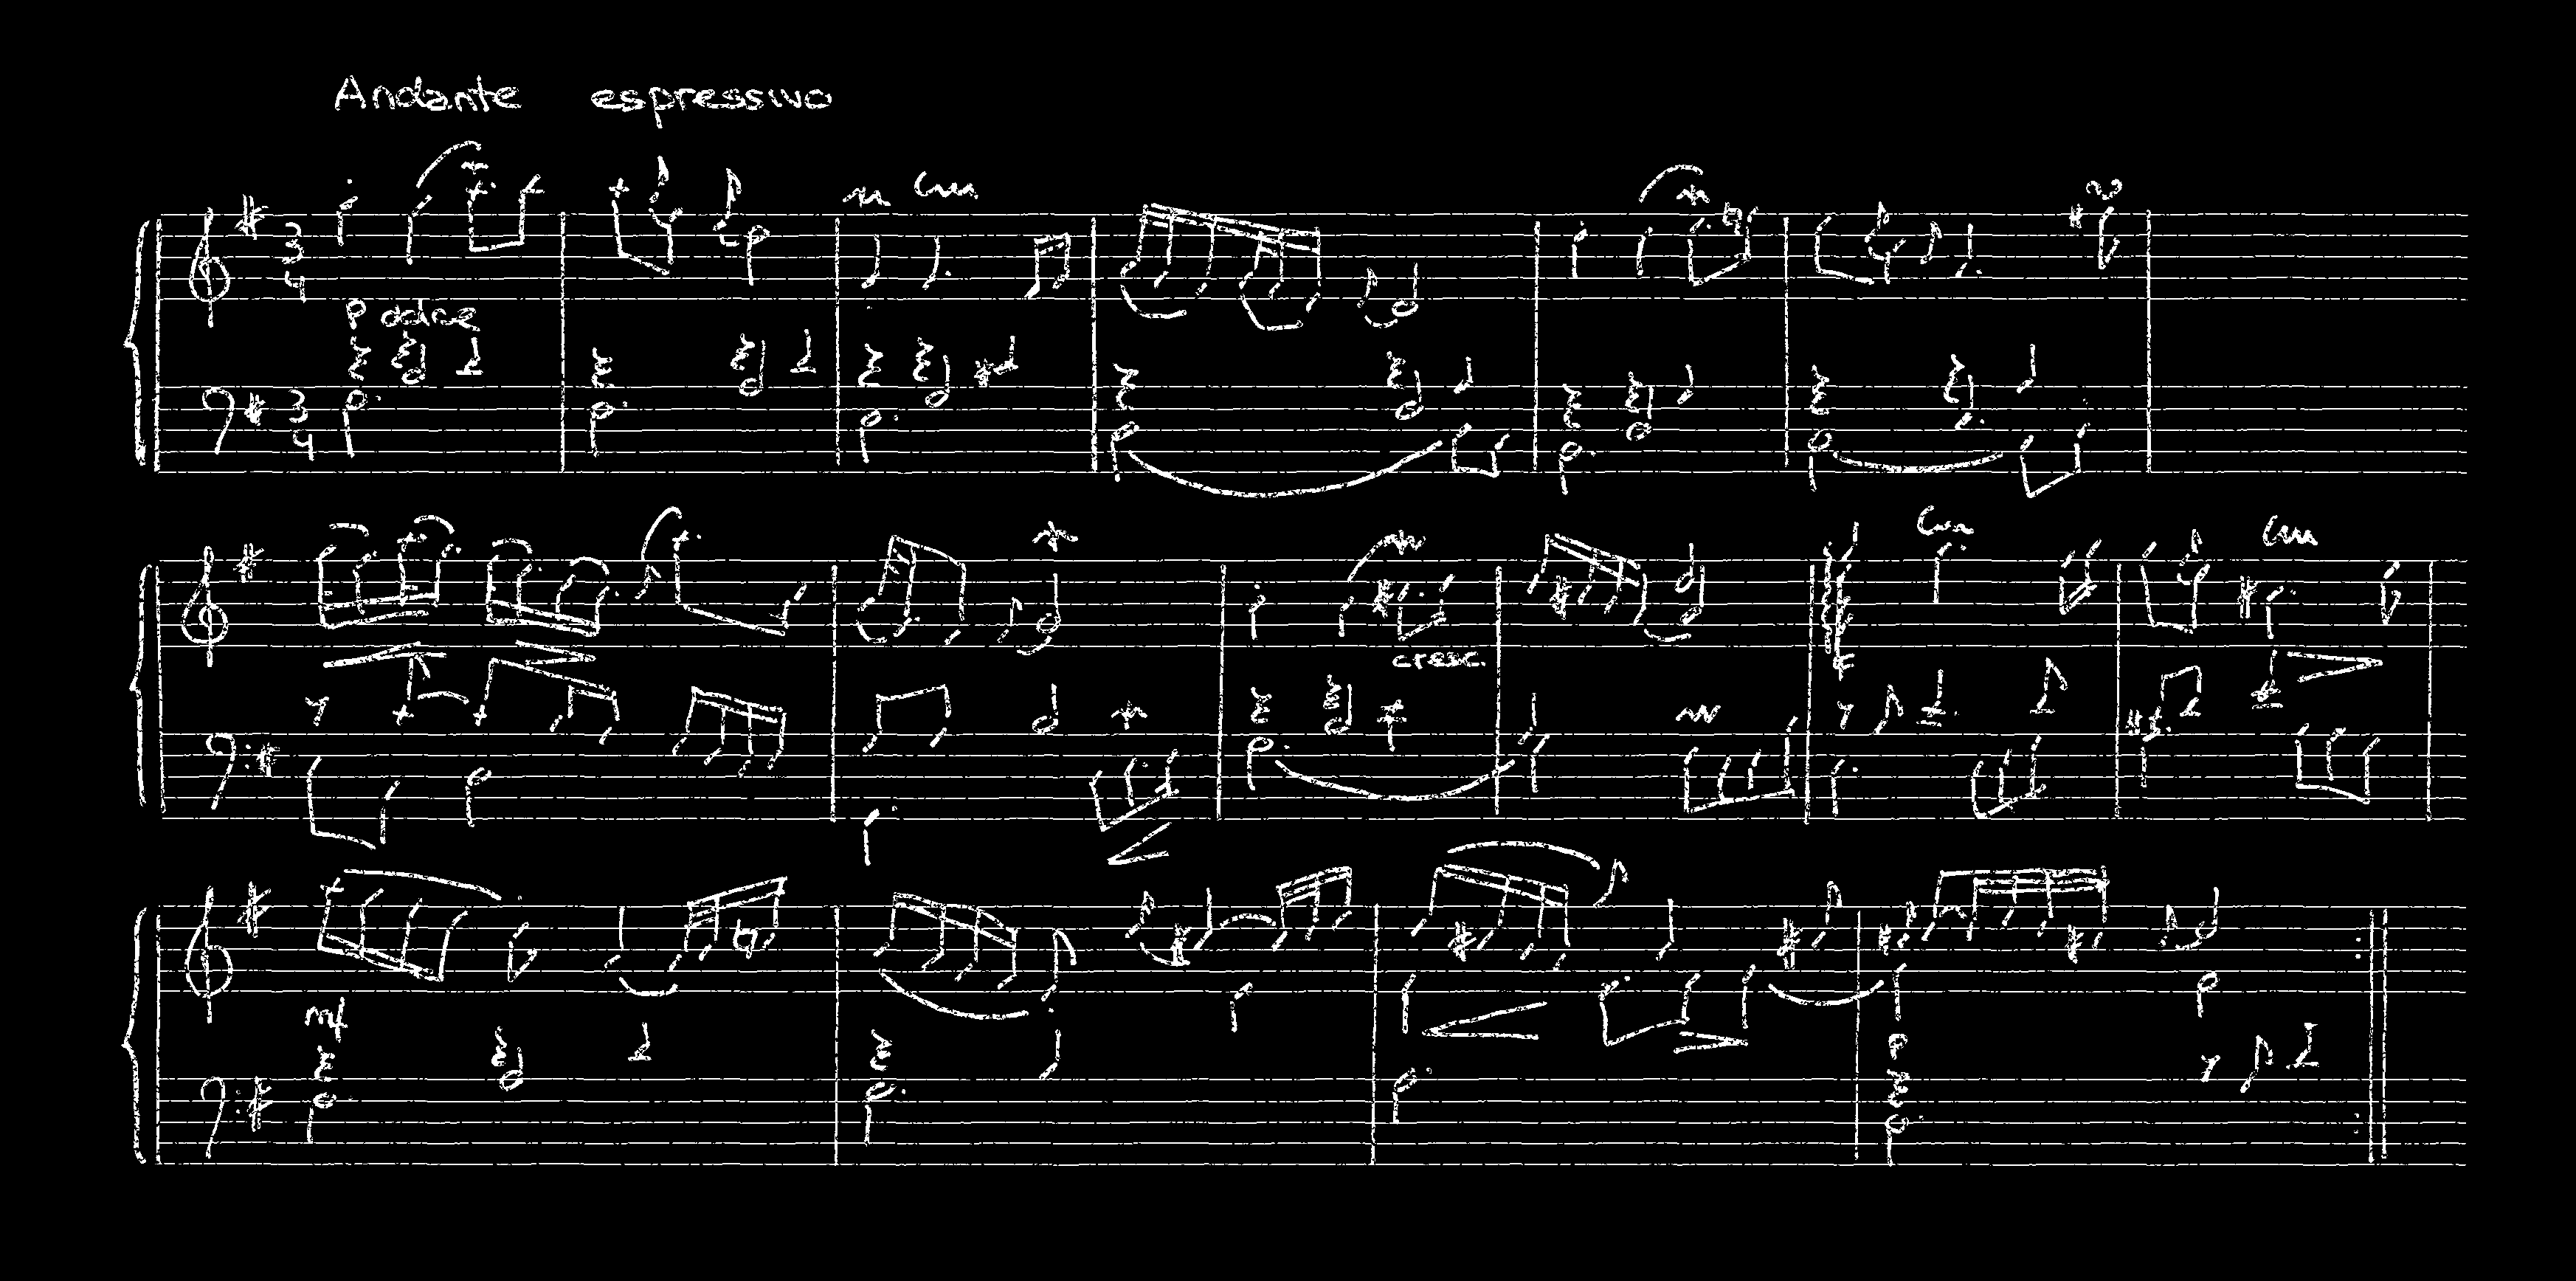 Andante espressivo
3
4
P dolce
3
4
cresc.
f
mf
P